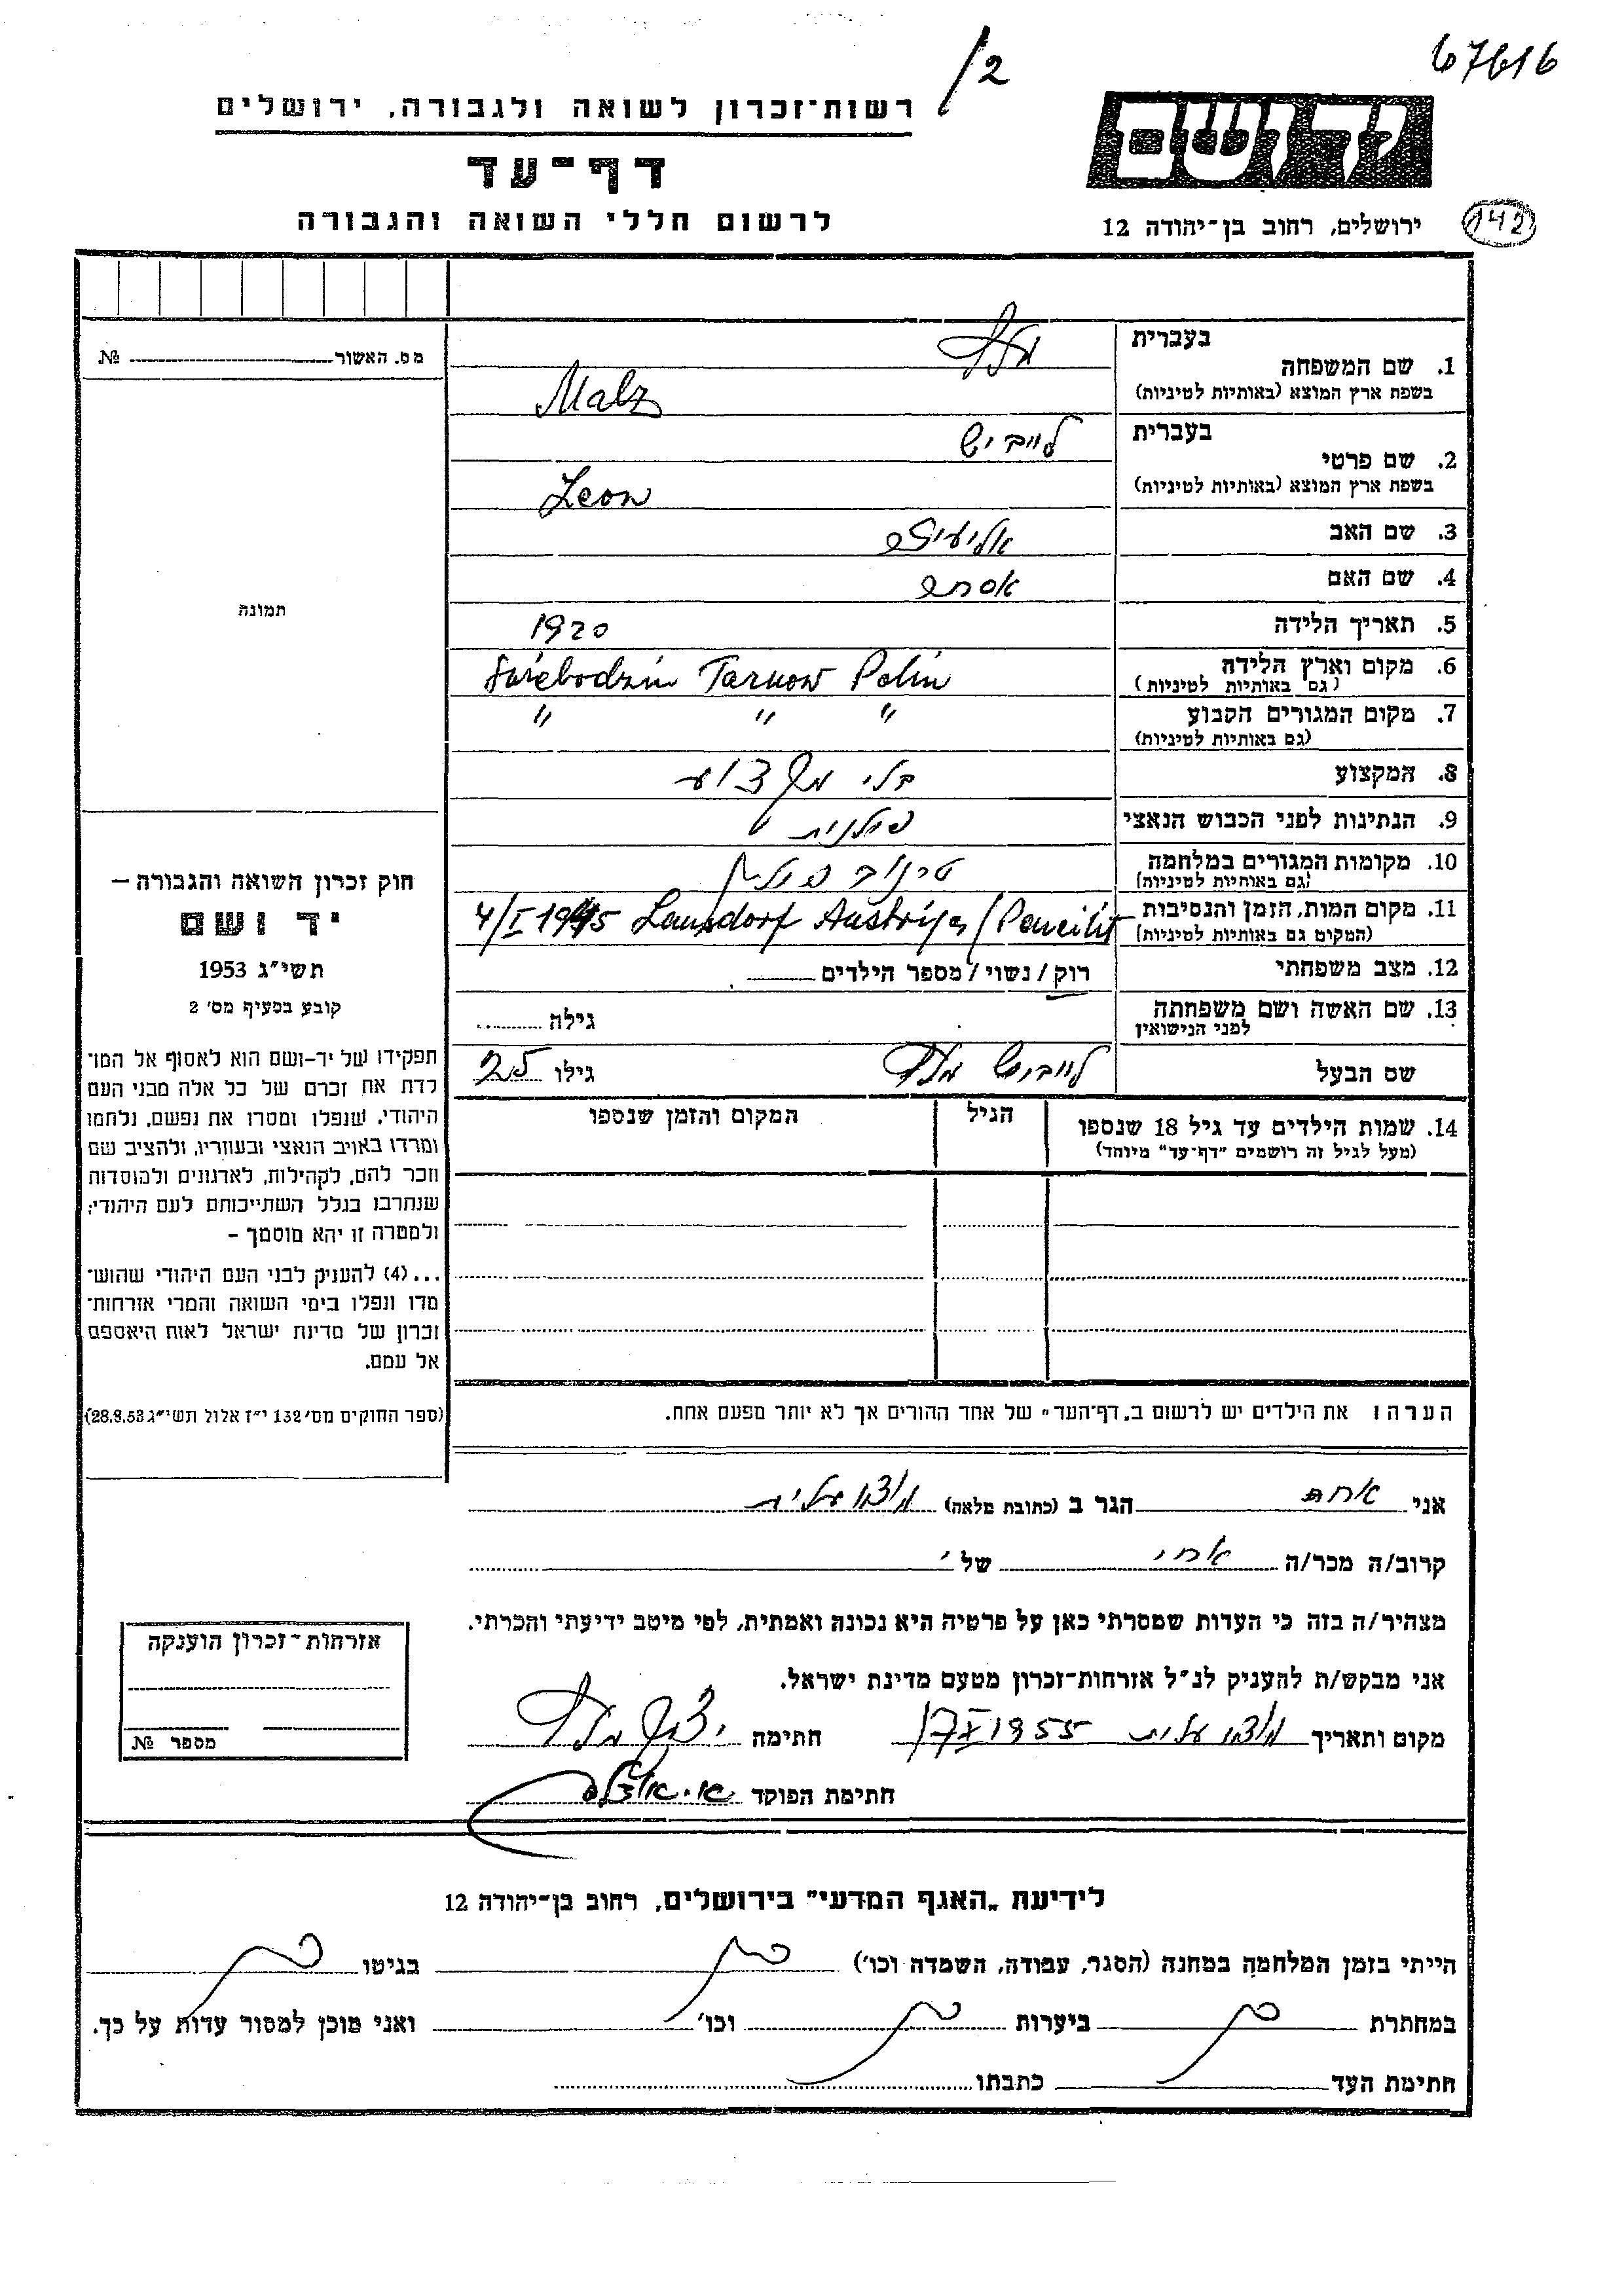 67616
/2
רשות־זכרון לשואה ולגבורה, ירושלים
דף־עד
לרשום חללי השואה והגבורה
יד ושם
ירושלים, רחוב בן־יהודה 12
142
מס. האשור № 
בעברית
1. שם המשפחה מלץ
בשפת ארץ המוצא (באותיות לטיניות) Malz
בעברית לייביש
2. שם פרטי
בשפת ארץ המוצא (באותיות לטיניות) Leon
3. שם האב
4. שם האם אסתר
5. תאריך הלידה 1920
6. מקום וארץ הלידה Swiebodzin Tarnow Polin
(גם באותיות לטיניות)
7. מקום המגורים הקבוע " " "
(גם באותיות לטיניות)
8. המקצוע בלי מקצוע
9. הנתינות לפני הכבוש הנאצי פולנית
10. מקומות המגורים במלחמה טרנוב פולין
(גם באותיות לטיניות)
11. מקום המות, הזמן והנסיבות 4/I 1945 Austrija
(המקום גם באותיות לטיניות)
12. מצב משפחתי רוק / נשוי / מספר הילדים
13. שם האשה ושם משפחתה גילה
לפני הנישואין
שם הבעל לייביש מלץ גילו 25
14. שמות הילדים עד גיל 18 שנספו הגיל המקום והזמן שנספו
(מעל לגיל זה רושמים "דף־עד" מיוחד)
הערה: את הילדים יש לרשום ב„דף־העד" של אחד ההורים אך לא יותר מפעם אחת.
תמונה
חוק זכרון השואה והגבורה —
יד ושם
תשי"ג 1953
קובע בסעיף מס' 2
תפקידו של יד-ושם הוא לאסוף אל המו־
לדת את זכרם של כל אלה מבני העם
היהודי, שנפלו ומסרו את נפשם, נלחמו
ומרדו באויב הנאצי ובעוזריו, ולהציב שם
וזכר להם, לקהילות, לארגונים ולמוסדות
שנחרבו בגלל השתייכותם לעם היהודי;
ולמטרה זו יהא מוסמך –
...(4) להעניק לבני העם היהודי שהוש־
מדו ונפלו בימי השואה והמרי אזרחות־
זכרון של מדינת ישראל לאות היאספם
אל עמם.
(ספר החוקים מס' 132 י"ז אלול תשי"ג 28.8.53)
אני הגר ב (כתובת מלאה)
קרוב/ה מכר/ה אחי של
מצהיר/ה בזה כי העדות שמסרתי כאן על פרטיה היא נכונה ואמתית, לפי מיטב ידיעתי והכרתי.
אני מבקש/ת להעניק לנ"ל אזרחות־זכרון מטעם מדינת ישראל.
מקום ותאריך 1955 חתימה יצחק מלץ
חתימת הפוקד
אזרחות־זכרון הוענקה
מספר №
לידיעת „האגף המדעי" בירושלים, רחוב בן־יהודה 12
הייתי בזמן המלחמה במחנה (הסגר, עבודה, השמדה וכו') בגיטו
במחתרת ביערות וכו' ואני מוכן למסור עדות על כך.
חתימת העד כתבתו